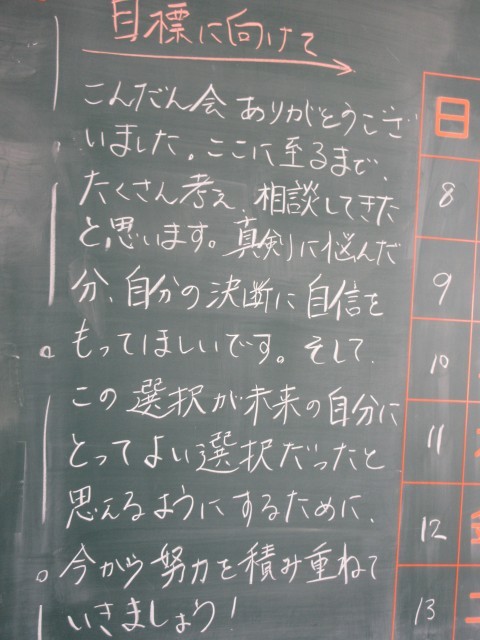 目標に向けて
こんだん会 ありがとうござ
いました。ここに至るまで、
たくさん考え、相談してきた
と思います。真剣に悩んだ
分、自分の決断に自信を
もってほしいです。そして、
この選択が未来の自分に
とってよい選択だったと
思えるようにするために、
今から努力を積み重ねて
いきましょう!
日
8
9
10
11
12
13